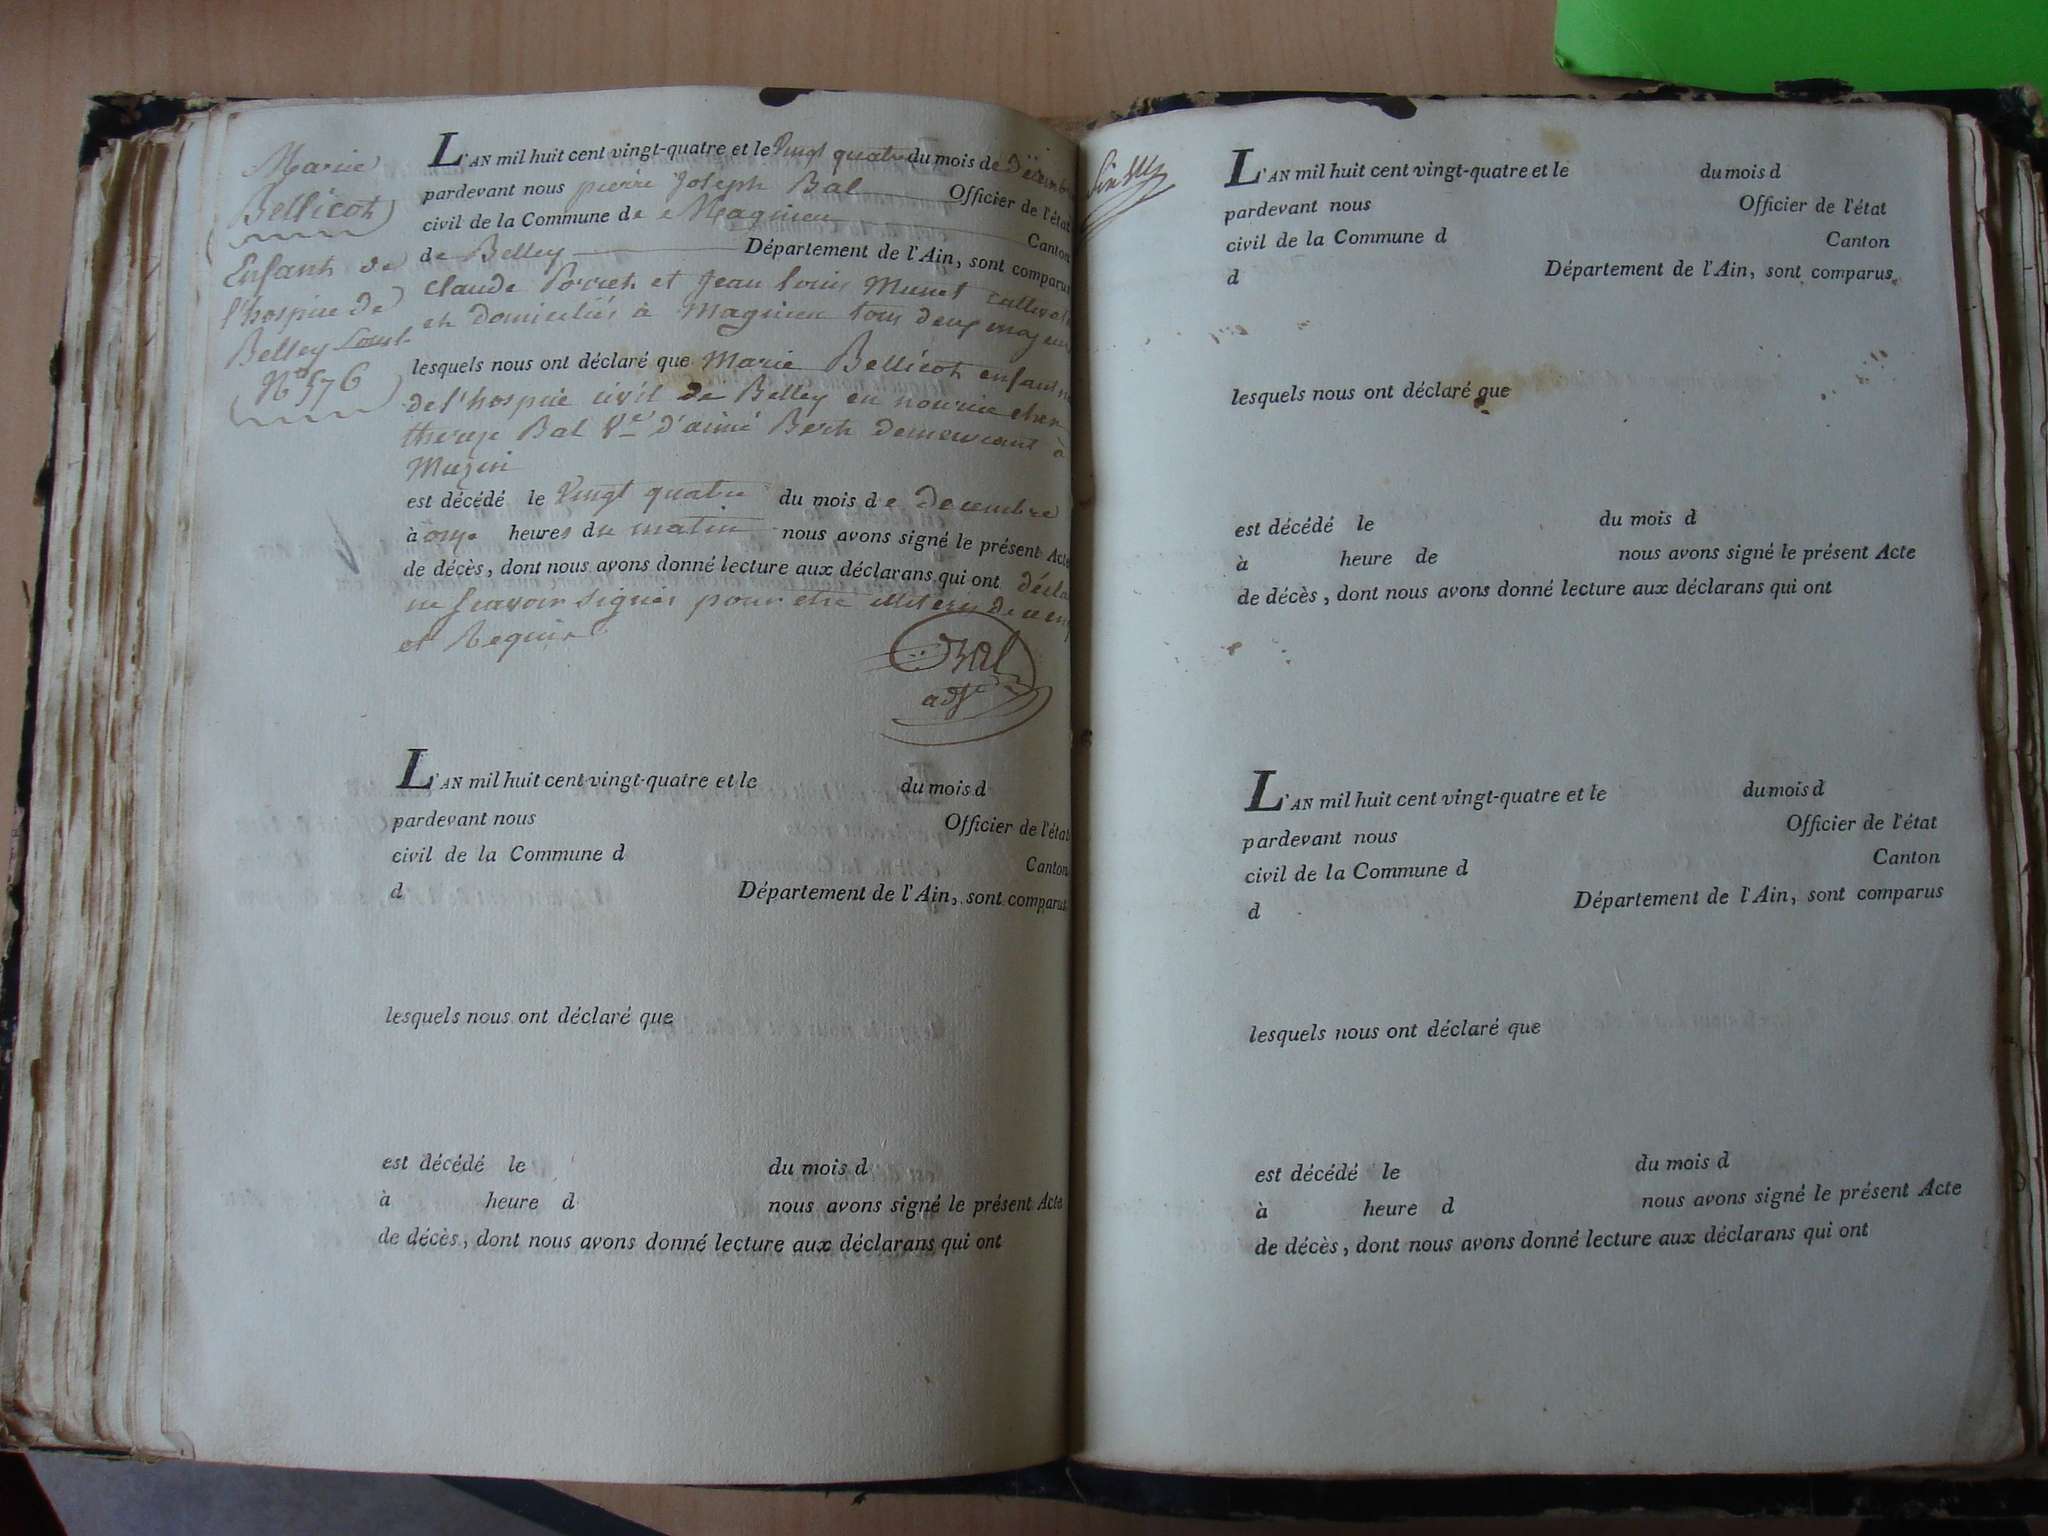 Marie
Bellicot
Enfant de
l'hospice de
Belley sous
No 576
L'AN mil huit cent vingt-quatre et le vingt quatre du mois de Décembre
pardevant nous pierre Joseph Bal Officier de l'état
civil de la Commune de Magnieu Canton
de Belley Département de l'Ain, sont comparus
claude Porret et Jean louis Munet
et domiciliés à Magnieu tous deux majeurs
lesquels nous ont déclaré que Marie Bellicot enfant
de l'hospice civil de Belley en nourrice chez
therese Bal Ve d'aimé Berth demeurant à
Muzin
est décédé le vingt quatre du mois de decembre
à onze heures du matin nous avons signé le présent Acte
de décès, dont nous avons donné lecture aux déclarans qui ont
ne scavoir signer pour etre de ce
et Requis
Bal
adjt
L'AN mil huit cent vingt-quatre et le du mois d
pardevant nous Officier de l'état
civil de la Commune d Canton
d Département de l'Ain, sont comparus
lesquels nous ont déclaré que
est décédé le du mois d
à heure d nous avons signé le présent Acte
de décès, dont nous avons donné lecture aux déclarans qui ont
L'AN mil huit cent vingt-quatre et le du mois d
pardevant nous Officier de l'état
civil de la Commune d Canton
d Département de l'Ain, sont comparus
lesquels nous ont déclaré que
est décédé le du mois d
à heure de nous avons signé le présent Acte
de décès, dont nous avons donné lecture aux déclarans qui ont
L'AN mil huit cent vingt-quatre et le du mois d
pardevant nous Officier de l'état
civil de la Commune d Canton
d Département de l'Ain, sont comparus
lesquels nous ont déclaré que
est décédé le du mois d
à heure d nous avons signé le présent Acte
de décès, dont nous avons donné lecture aux déclarans qui ont